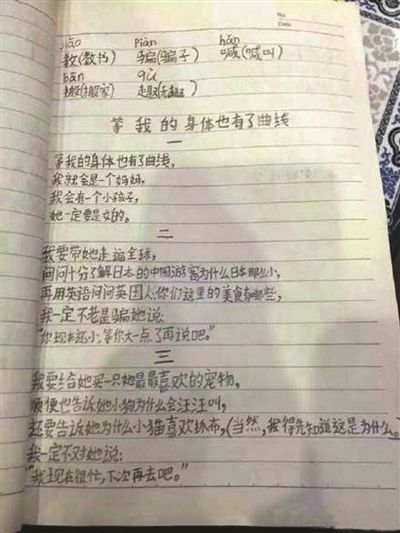 No
Date
jiāo piàn hǎn
教(教书) 骗(骗子) 喊(喊叫)
bān qù
搬(搬家) 趣(无趣)
等我的身体也有了曲线
一
等我的身体也有了曲线,
我就会是一个妈妈,
我会有一个小孩子,
她一定要是女的。
二
我要带她走遍全球,
问问十分了解日本的中国游客为什么日本那么小,
再用英语问问英国人:你们这里的美食有哪些,
我一定不老是骗她说:
"你现在还小,等你大一点了再说吧。"
三
我要给她买一只她最最喜欢的宠物,
顺便也告诉她小狗为什么会汪汪叫,
还要告诉她为什么小猫喜欢抓布,(当然,我得先知道这是为什么。
我一定不对她说:
"我现在很忙,下次再去吧。"